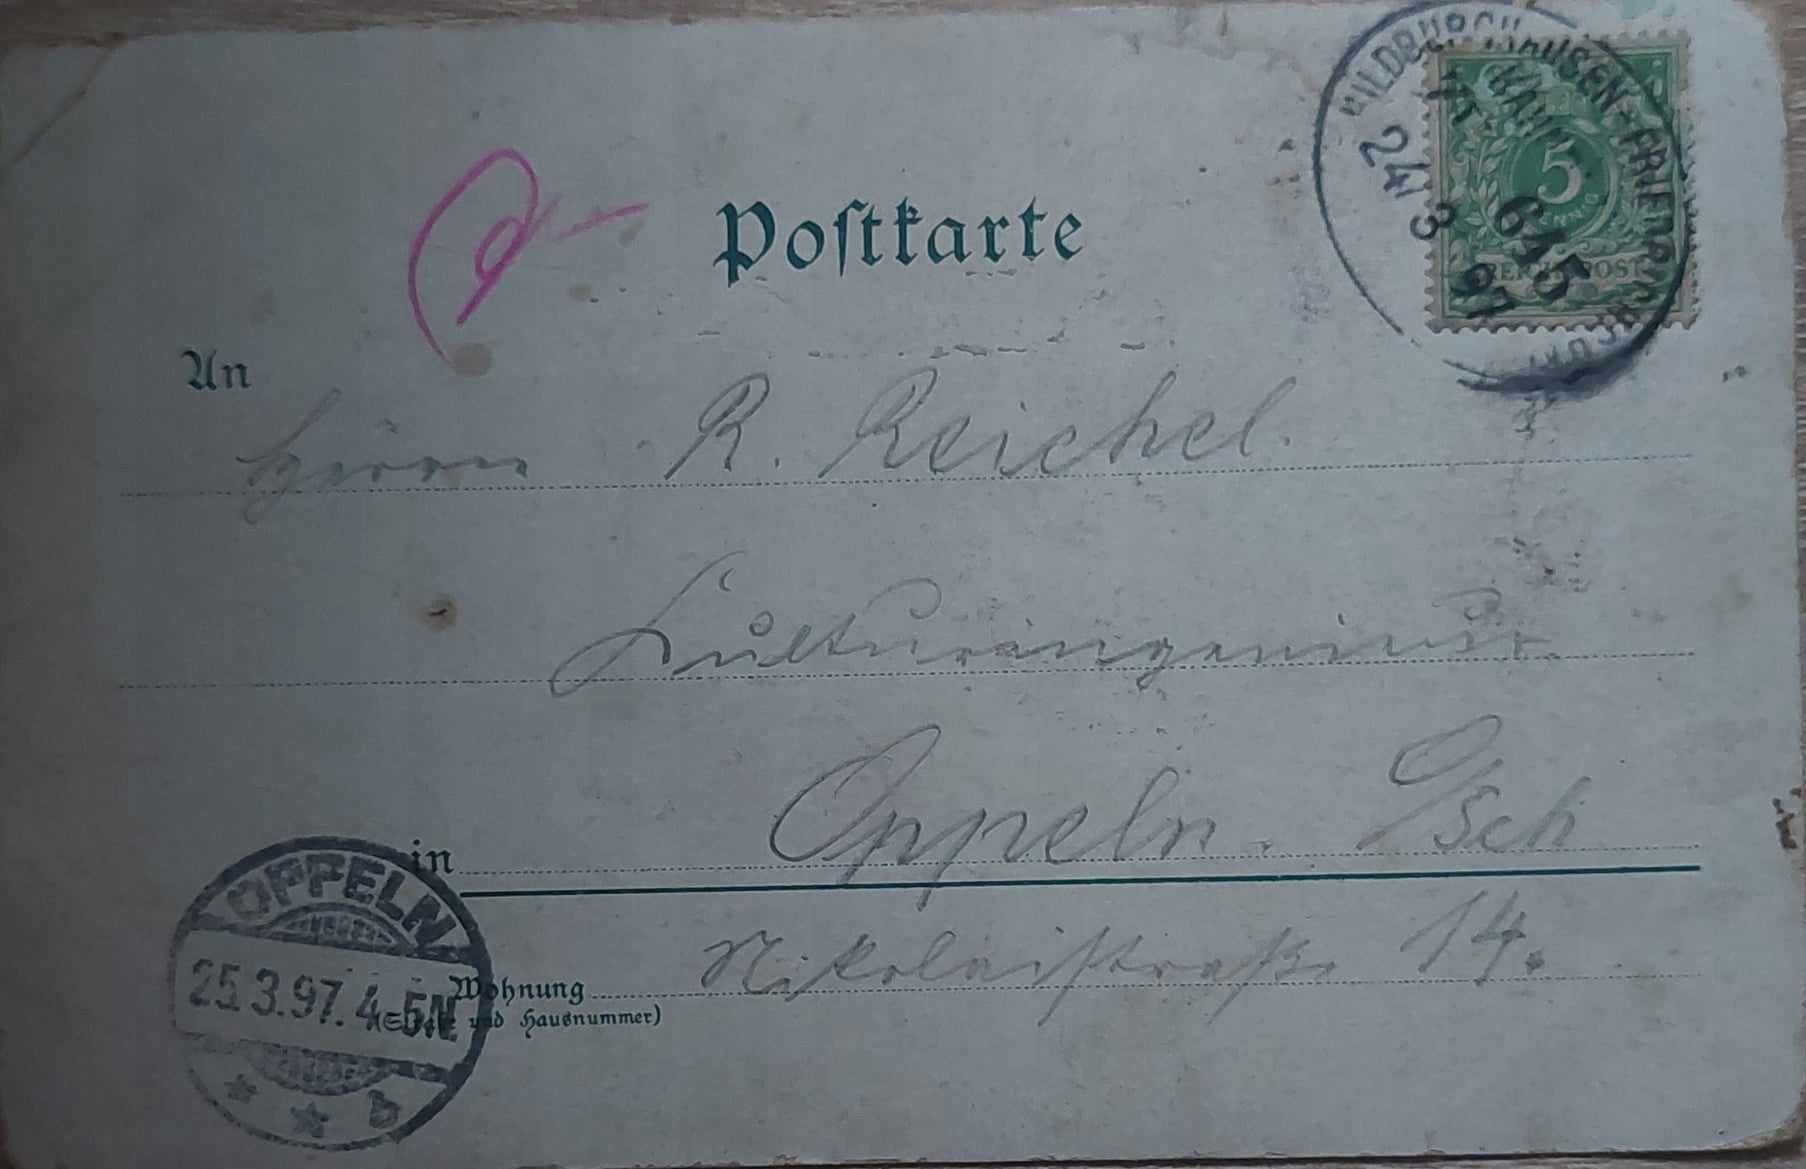 Postkarte
HILDBURGHAUSEN-FRIEDR
24 3 97
645
5
PFENNIG
REICHSPOST
An
Herrn R. Reichel.
Kulturingenieur.
in Oppeln. O/Sch
Wohnung Nikolaistraße 14.
(Straße und Hausnummer)
OPPELN
25.3.97. 4-5N
* * b